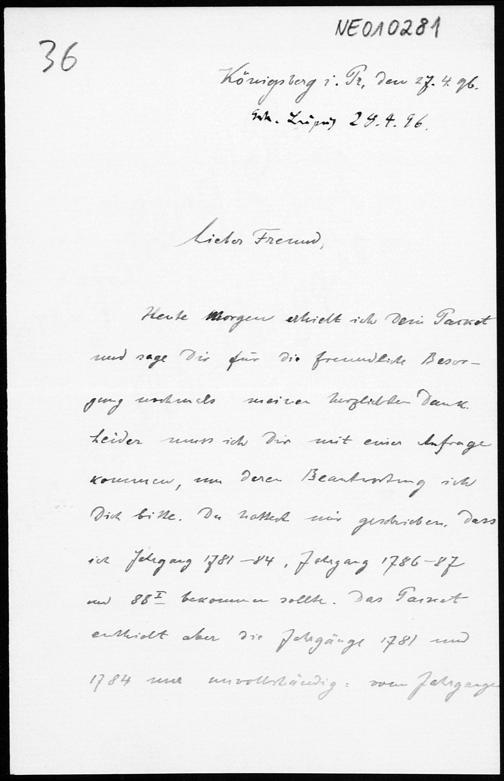 NE010281
36
Königsberg i. Pr, den 27. 4. 96.
Erh. Leipzig 28.4.96.
Lieber Freund,
Heute Morgen erhielt ich Dein Packet
und sage Dir für die freundliche Besor-
gung nochmals meinen herzlichsten Dank.
Leider muss ich Dir mit einer Anfrage
kommen, um deren Beantwortung ich
Dich bitte. Du hattest mir geschrieben, dass
ich Jahrgang 1781–84, Jahrgang 1786–87
und 88 I bekommen sollte. Das Packet
enthielt aber die Jahrgänge 1781 und
1784 nur unvollständig: vom Jahrgange